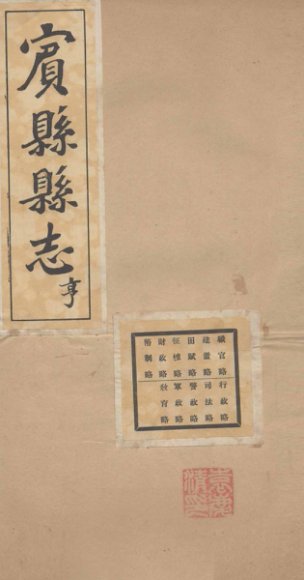 賓縣縣志
亨
職官略 行政略
建置略 司法略
田賦略 警政略
征榷略 軍政略
財政略 敎育略
徭制略